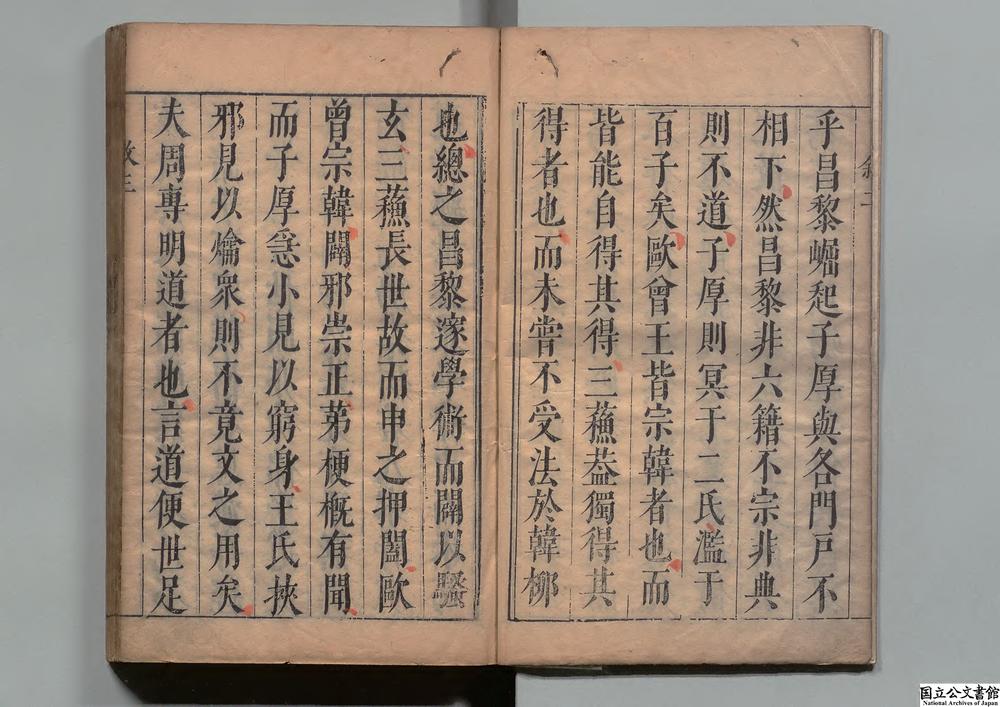 乎昌黎崛起子厚與各門戶不
相下然昌黎非六籍不宗非典
則不道子厚則冥于二氏濫于
百子矣歐曾王皆宗韓者也而
皆能自得其得三蘓葢獨得其
得者也而未嘗不受法於韓柳
也總之昌黎邃學術而闢以醫
玄三蘓長世故而申之押闔歐
曾宗韓闢邪崇正苐梗槪有聞
而子厚急小見以窮身王氏挾
邪見以爚衆則不竟文之用矣
夫周專明道者也言道便世足
国立公文書館
National Archives of Japan